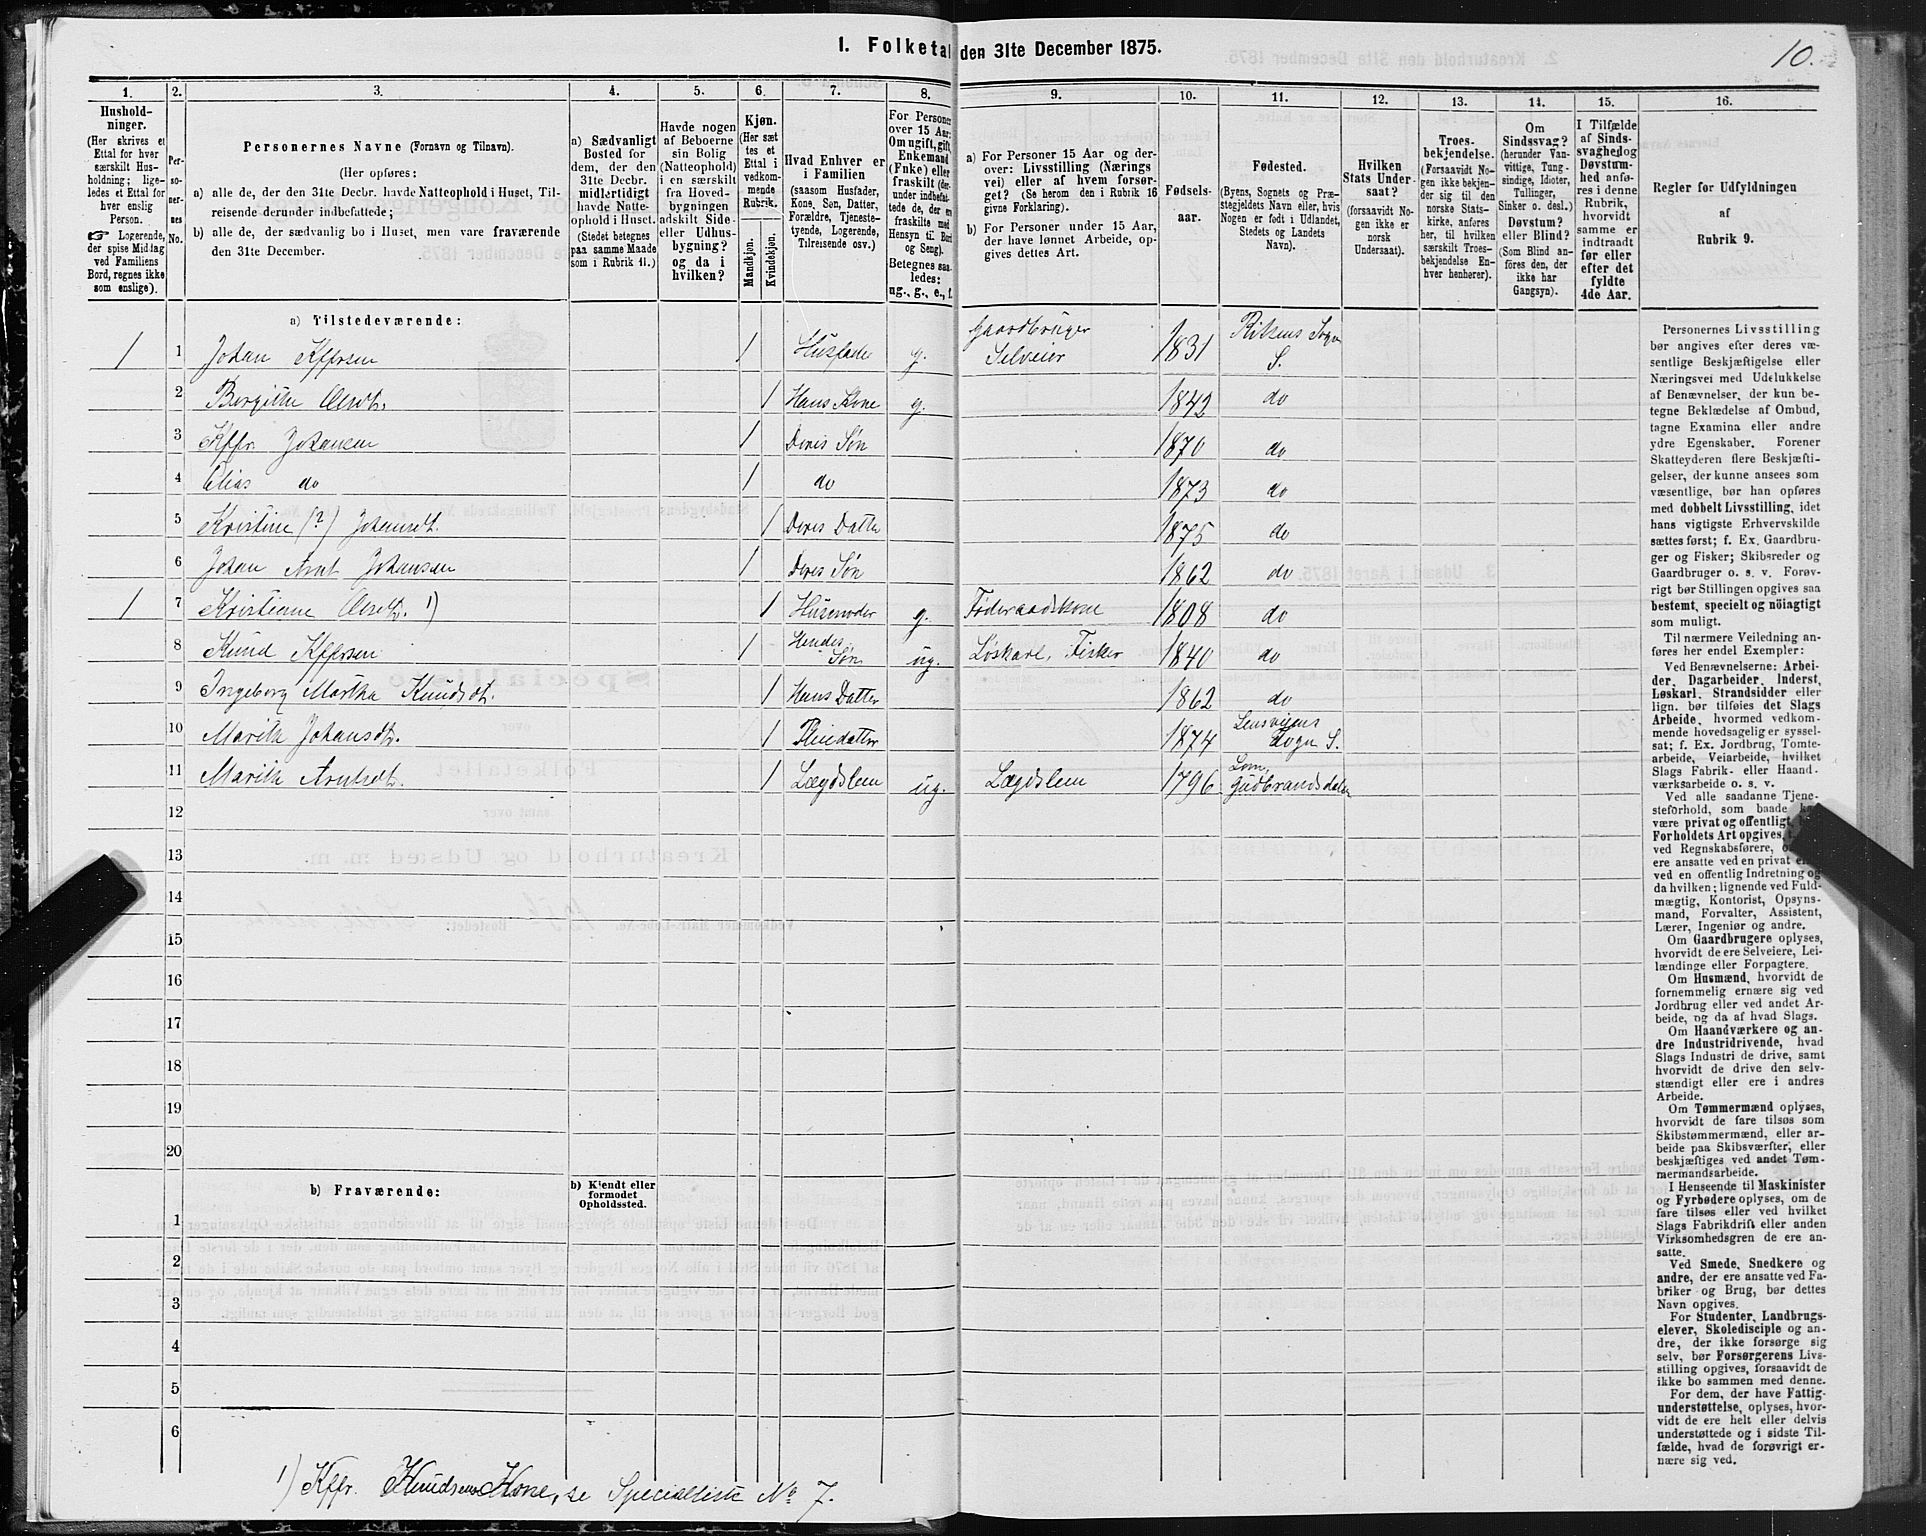 1. Folketal den 31te December 1875.
10.
1. 2. 3. 4. 5. 6. 7. 8. 9. 10. 11. 12. 13. 14. 15. 16.
Hushold-
ninger.
(Her skrives et
Ettal for hver
særskilt Hus-
holdning; lige-
ledes et Ettal
for hver enslig
Person.
☞ Logerende,
der spise Middag
ved Familiens
Bord, regnes ikke
som enslige).
Per-
so-
ner-
nes
No.
Personernes Navne (Fornavn og Tilnavn).
(Her opføres:
a) alle de, der den 31te Decbr. havde Natteophold i Huset, Til-
reisende derunder indbefattede;
b) alle de, der sædvanlig bo i Huset, men vare fraværende
den 31te December.
a) Sædvanligt
Bosted for
dem, der den
31te Decbr.
midlertidigt
havde Natte-
ophold i Huset.
(Stedet betegnes
paa samme Maade
som i Rubrik 11.)
Havde nogen
af Beboerne
sin Bolig
(Natteophold)
i en særskilt
fra Hoved-
bygningen
adskilt Side-
eller Udhus-
bygning?
og da i
hvilken?
Kjøn.
(Her sæt-
tes et
Ettal i
vedkom-
mende
Rubrik.
Mandkjøn.
Kvindekjøn.
Hvad Enhver er
i Familien
(saasom Husfader,
Kone, Søn, Datter,
Forældre, Tjeneste-
tyende, Logerende,
Tilreisende osv.)
For Personer
over 15 Aar:
Om ugift, gift,
Enkemand
(Enke) eller
fraskilt (der-
under indbefat-
tede de, der ere
fraskilte med
Hensyn til Bord
og Seng).
Betegnes saa-
ledes:
ug., g., e., f.
a) For Personer 15 Aar og der-
over: Livsstilling (Nærings-
vei) eller af hvem forsør-
get? (Se herom den i Rubrik 16
givne Forklaring).
b) For Personer under 15 Aar,
der have lønnet Arbeide, op-
gives dettes Art.
Fødsels-
aar.
Fødested.
(Byens, Sognets og Præ-
stegjeldets Navn eller, hvis
Nogen er født i Udlandet,
Stedets og Landets
Navn).
Hvilken
Stats Under-
saat?
(forsaavidt No-
gen ikke er
norsk
Undersaat).
Troes-
bekjendelse.
(Forsaavidt No-
gen ikke bekjen-
der sig til den
norske Stats-
kirke, anføres
her, til hvilken
særskilt Troes-
bekjendelse En-
hver henhører).
Om
Sindssvag?
(herunder Van-
vittige, Tung-
sindige, Idioter,
Tullinger,
Sinker o. desl.)
Døvstum?
eller Blind?
(Som Blind an-
føres den, der
ikke har
Gangsyn).
I Tilfælde
af Sinds-
svaghed og
Døvstum-
hed anfø-
res i denne
Rubrik,
hvorvidt
samme er
indtraadt
før eller
efter det
fyldte
4de Aar.
Regler for Udfyldningen
af
Rubrik 9.
a) Tilstedeværende:
1 1 Johan Kffrsen 1 Husfader g. Gaardbruger Selveier 1831 Rissens Sogn S.
2 Borgitha Olsdt. 1 Hans Kone g. 1842 do
3 Kffr. Johansen 1 Deres Søn 1870 do
4 Elias do 1 do 1873 do
5 Kristine (?) Johansdt. 1 Deres Datter 1875 do
6 Johan Arnt Johansen 1 Deres Søn 1862 do
1 7 Kristiane Olsdt. 1) 1 Husmoder g. Føderaadskone 1808 do
8 Knud Kffrsen 1 Hendes Søn ug. Løskarl, Fisker 1840 do
9 Ingeborg Martha Knudsdt. 1 Hans Datter 1862 do
10 Marith Johansdt. 1 Pleiedatter 1874 Lensvigens Sogn S.
11 Marith Arntsdt. 1 Lægdslem ug. Lægdslem 1796 Lom, Gudbrandsdalen
12
13
14
15
16
17
18
19
20
b) Fraværende:
b) Kjendt eller
formodet
Opholdssted.
1
2
3
4
5
6
1) Kffr. Knudsens Kone, se Specialliste No 7.
Personernes Livsstilling
bør angives efter deres væ-
sentlige Beskjæftigelse eller
Næringsvei med Udelukkelse
af Benævnelser, der kun be-
tegne Beklædelse af Ombud,
tagne Examina eller andre
ydre Egenskaber. Forener
Skatteyderen flere Beskjæfti-
gelser, der kunne ansees som
væsentlige, bør han opføres
med dobbelt Livsstilling, idet
hans vigtigste Erhvervskilde
sættes først; f. Ex. Gaardbru-
ger og Fisker; Skibsreder og
Gaardbruger o. s. v. Forøv-
rigt bør Stillingen opgives saa
bestemt, specielt og nöiagtigt
som muligt.
Til nærmere Veiledning an-
føres her endel Exempler:
Ved Benævnelserne: Arbei-
der, Dagarbeider, Inderst,
Løskarl, Strandsidder eller
lign. bør tilføies det Slags
Arbeide, hvormed vedkom-
mende hovedsagelig er syssel-
sat; f. Ex. Jordbrug, Tomte-
arbeide, Veiarbeide, hvilket
Slags Fabrik- eller Haand-
værksarbeide o. s. v.
Ved alle saadanne Tjene-
steforhold, som baade
være privat og offentligt,
Forholdets Art opgives,
ved Regnskabsførere,
ere ansatte ved en privat
ved en offentlig Indretning og
da hvilken; lignende ved Fuld-
mægtig, Kontorist, Opsyns-
mand, Forvalter, Assistent,
Lærer, Ingeniør og andre.
Om Gaardbrugere oplyses,
hvorvidt de ere Selveiere, Lei-
lændinge eller Forpagtere.
Om Husmænd, hvorvidt de
fornemmelig ernære sig ved
Jordbrug eller ved andet Ar-
beide, og da af hvad Slags.
Om Haandværkere og an-
dre Industridrivende, hvad
Slags Industri de drive, samt
hvorvidt de drive den selv-
stændigt eller ere i andres
Arbeide.
Om Tømmermænd oplyses,
hvorvidt de fare tilsøs som
Skibstømmermænd, eller ar-
beide paa Skibsværfter, eller
beskjæftiges ved andet Tøm-
mermandsarbeide.
I Henseende til Maskinister
og Fyrbødere oplyses, om de
fare tilsøs eller ved hvilket
Slags Fabrikdrift eller anden
Virksomhedsgren de ere an-
satte.
Ved Smede, Snedkere og
andre, der ere ansatte ved Fa-
briker og Brug, bør dettes
Navn opgives.
For Studenter, Landbrugs-
elever, Skoledisciple og an-
dre, der ikke forsørge sig
selv, bør Forsørgerens Livs-
stilling opgives, forsaavidt de
ikke bo sammen med denne.
For dem, der have Fattig-
understøttelse, oplyses, hvor-
vidt de ere helt eller delvis
understøttede og i sidste Til-
fælde, hvad de forøvrigt er-
nære sig ved.